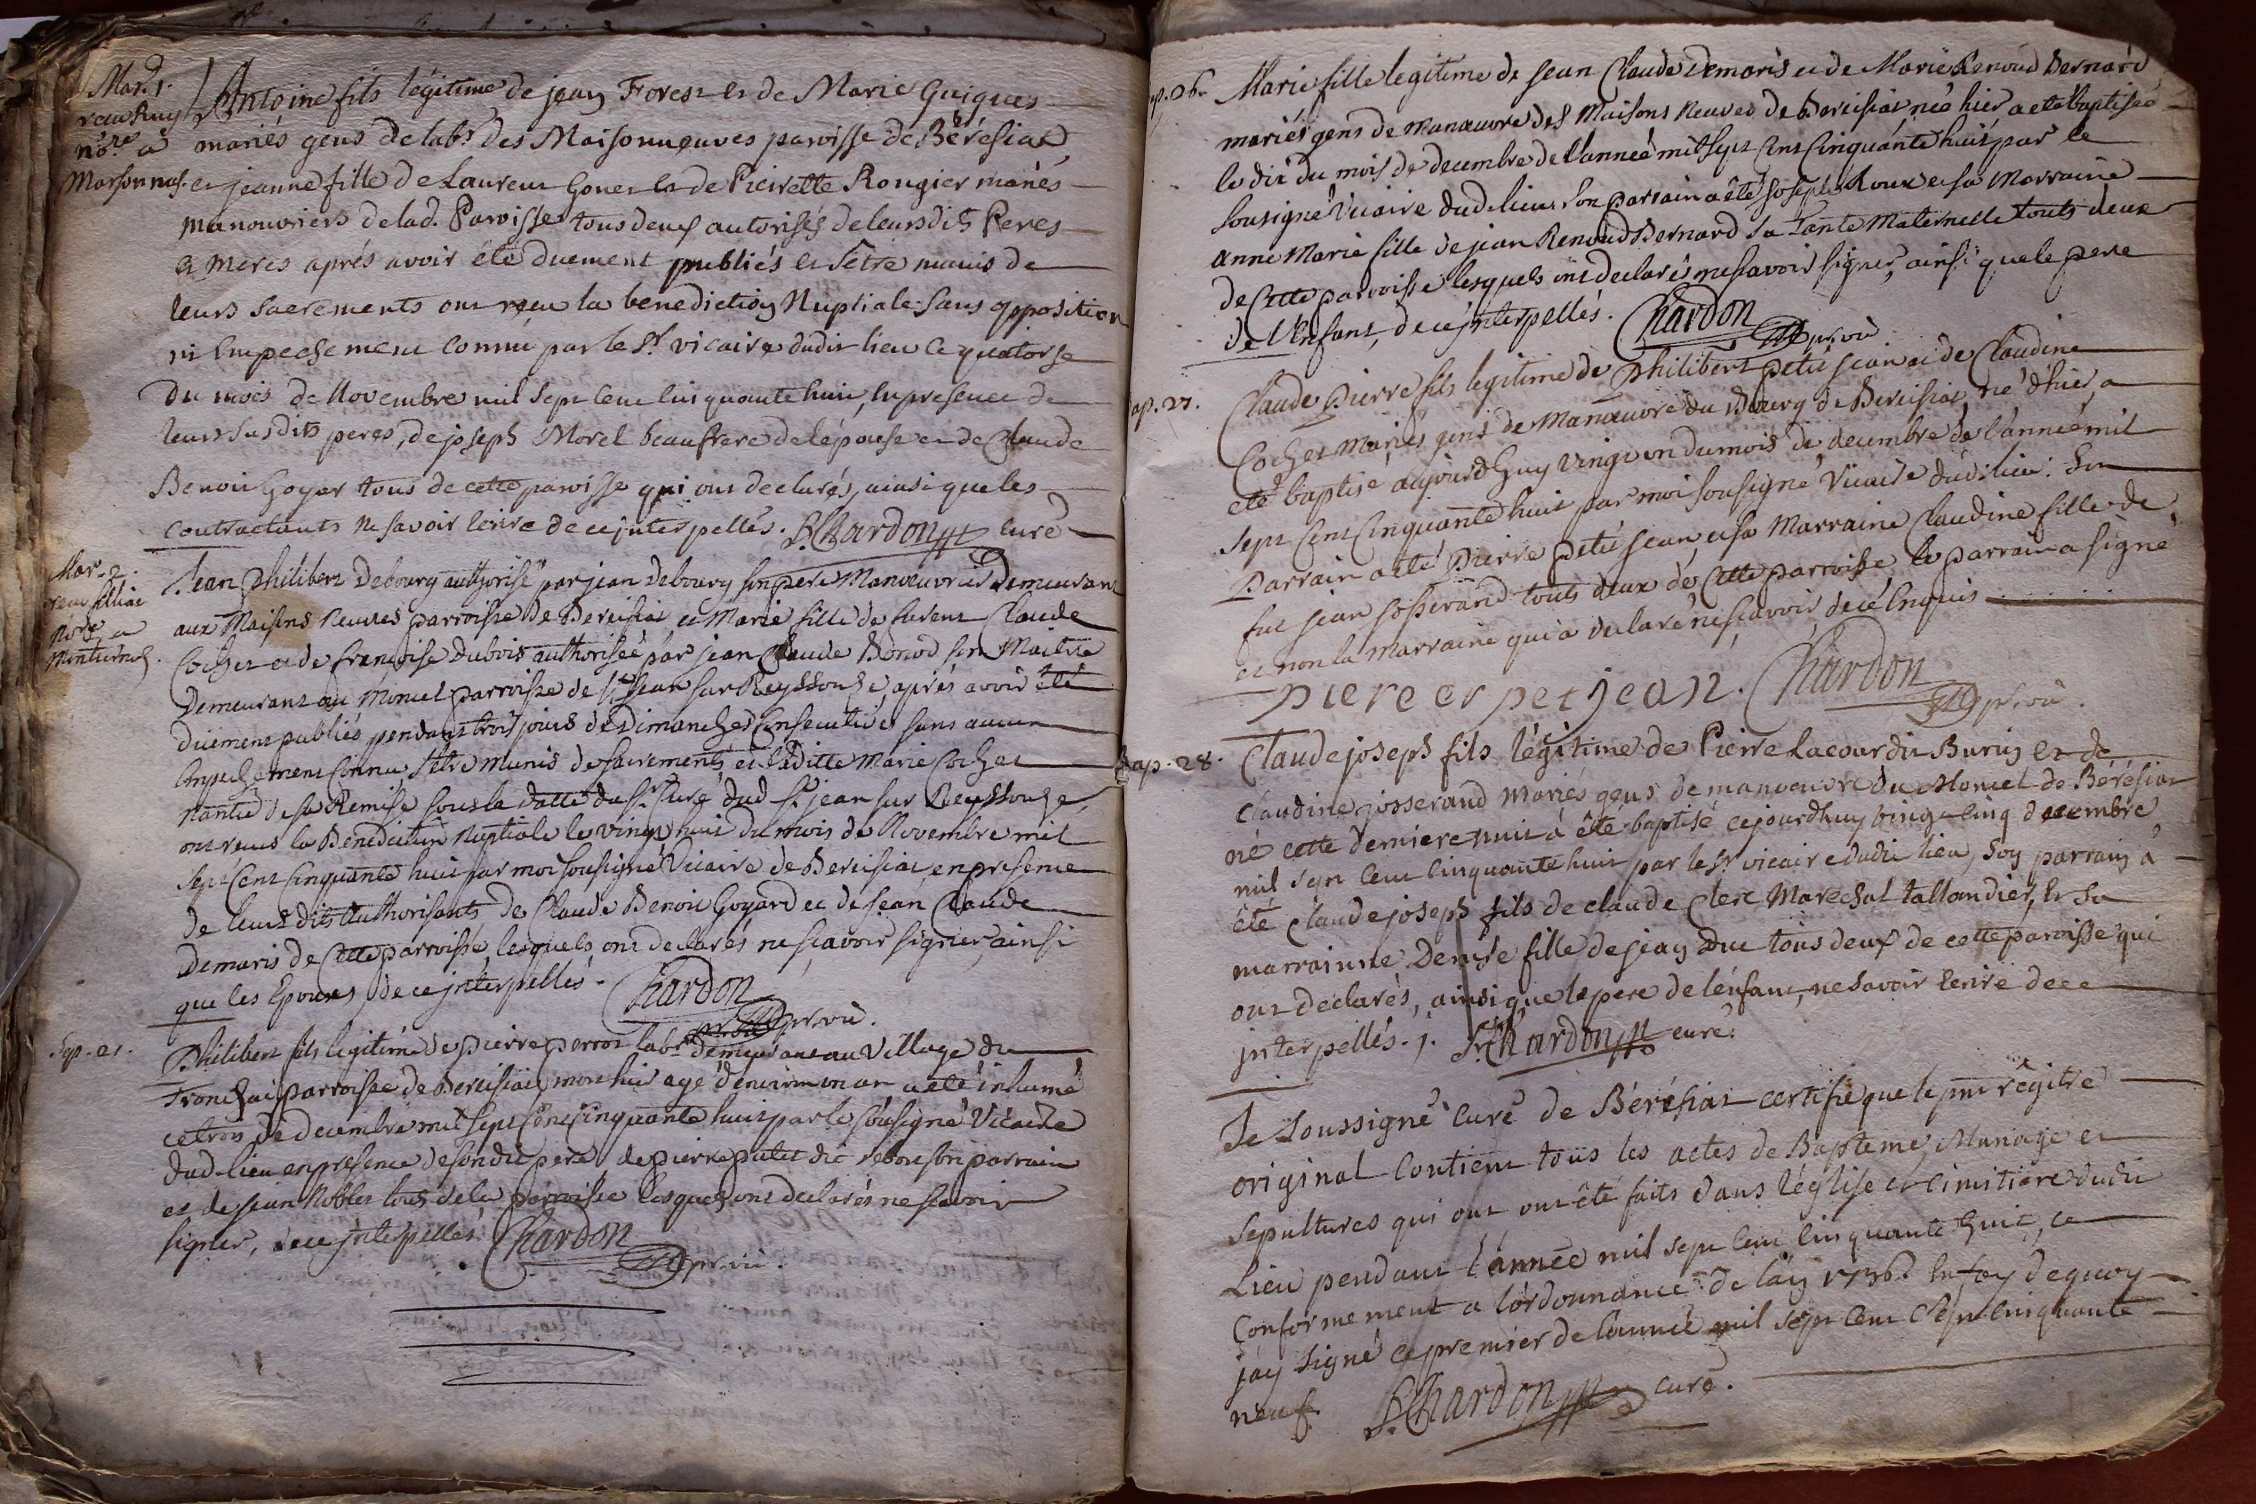 Mar. 1.
reçu Ruy
nore a
Marsonnas.
Antoine fils légitime de jean Forest et de Marie Guigues
mariés gens de labr. des Maisonneuves paroisse de Bérésiat,
et jeanne fille de Laurent Goyet et de Pierrette Rougier mariés
manouvriers de lad. Paroisse tous deux autorisés de leursdits Peres
et Meres aprés avoir été duement publiés et s'étre munis de
leurs sacrements ont reçu la benediction Nuptiale sans opposition
ni Empechement connu par le Sr. vicaire dudit lieu ce quatorse
du mois de Novembre mil sept cent cinquante huit, en presence de
leurs susdits peres, de joseph Morel beaufrere de l'épouse et de Claude
Benoit Goyar tous de cette paroisse qui ont declarés, ainsi que les
contractants ne savoir ecrire de ce interpellés. P. Chardon curé
Mar. 2.
reçu
nore a
Jean Philibert Debourg authorisé par jean Debourg son pere Manoeuvrier Demeurant
aux Maisons neuves parroisse de Bereisiat et Marie fille de furent Claude
Cochet et de françoise Dubois authorisée par jean Claude Bonod son Maitre
Demeurant au Moncel parroisse de St. Jean sur Reyssouze, aprés avoir été
duement publiés pendant trois jours de Dimanches consecutives sans aucun
Empechement connu s'etre munis de sacrements et laditte Marie Cochet
nantie de sa Remise sous la datte du Sr. Curé dud. St. jean sur Reyssouze,
ont reçus la Benediction nuptiale le vingt huit du mois de Novembre mil
sept Cent Cinquante huit par moi sousigné Vicaire de Bereisiat en presence
de leurs dits Authorisants de Claude Benoit Goyard et de jean Claude
Demaris de Cette parroisse, lesquels ont declarés ne scavoir signer, ainsi
que les Epoux, de ce jnterpellés. Chardon
pr. vic.
Sep. 21.
Philibert fils legitime de pierre perrot labr. demeurant au Village du
Tronchai parroisse de Bereisiat, mort hier agé d'environ un an a eté inhumé
ce trois de decembre mil sept Cent Cinquante huit par le sousigné Vicaire
dud. lieu en presence de son dit pere, de pierre putet dit rebout son parrain
et de jean Noblet tous de la parroisse lesquels ont declarés ne scavoir
signer, de ce jnterpellés. Chardon
pr. vic.
Bap. 26.
Marie fille legitime de jean Claude Demaris et de Marie Renoud Bernard
mariés gens de manoeuvre des Maisons neuves de Bereisiat née hier a eté baptisée
le dix du mois de decembre de l'année mil sept Cent Cinquante huit par le
sousigné Vicaire dud. lieu. Son parrain a été joseph Roux et sa Marraine
anne Marie fille de jean Renoud Bernard sa Tante Maternelle touts deux
de Cette parroisse lesquels ont declarés ne scavoir signer, ainsi que le pere
de l'Enfant, de ce jnterpellés. Chardon
pr. vic.
Bap. 27.
Claude Pierre fils legitime de Philibert petit jean et de Claudine
Cochet Mariés gens de Manoeuvre du Bourg de Bereisiat né d'hier, a
eté baptisé aujourd'huy vingt un du mois de decembre de l'année mil
sept Cent Cinquante huit par moi sousigné Vicaire dudit lieu. Son
Parrain a eté Pierre petit jean, et sa Marraine Claudine fille de
fut jean josserand touts deux de Cette parroisse le parrain a signé
et non la Marraine qui a declaré ne scavoir de cé Enquis
piere petijean. Chardon
pr. vic.
Bap. 28.
Claude joseph fils légitime de Pierre Lacour dit Burin et de
Claudine josserand mariés gens de manoeuvre du Moncel de Bérésiat
né cette derniere nuit à été baptisé cejourd'huy vingt cinq decembre
mil sept cent cinquante huit par le sr. vicaire dudit lieu, son parrain à
été Claude joseph fils de claude Clerc Marechal tallandier, et sa
marrainne Denise fille de jean Duc tous deux de cette paroisse qui
ont declarés, ainsi que le pere de l'énfant, ne savoir ecrire de ce
jnterpellés. j. P. Chardon curé.
Je soussigné curé de Bérésiat certifie que le pnt régitre
original contient tous les actes de Bapteme, Mariage et
Sepultures qui ont ont été faits dans léglise et cimitiere dudit
Lieu pendant l'année mil sept cent cinquante huit, ce
Conformement a l'ordonnance de l'an 1736. En foy de quoy
j'ay signé ce premier de l'année mil sept cent cinquante
neuf. P. Chardon curé.